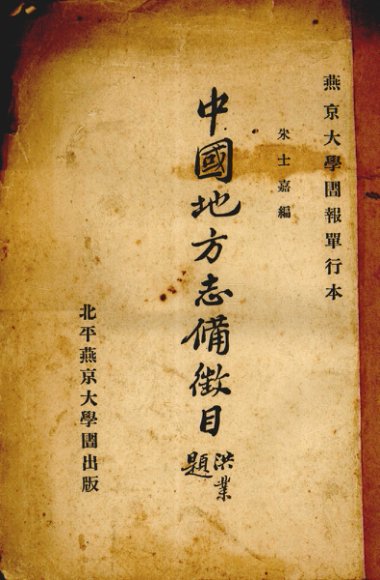 燕京大學圕報單行本
朱士嘉編
中國地方志備徵目
洪業
題
北平燕京大學圕出版